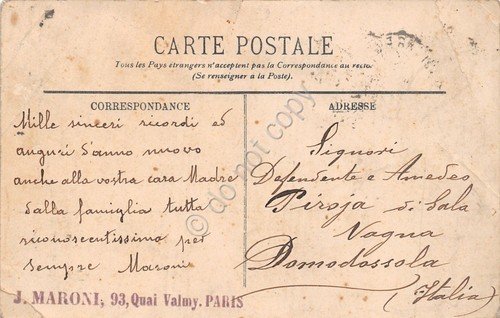 CARTE POSTALE
Tous les Pays étrangers n'acceptent pas la Correspondance au recto.
(Se renseigner à la Poste).
CORRESPONDANCE
Mille sinceri ricordi ed
auguri d'anno nuovo
anche alla vostra cara Madre
dalla famiglia tutta
riconoscentissimo per
sempre Maroni
J. MARONI, 93, Quai Valmy. PARIS
ADRESSE
Signori
Defendente e Amedeo
Piroja di Sala
Vagna
Domodossola
(Italia)
do not copy